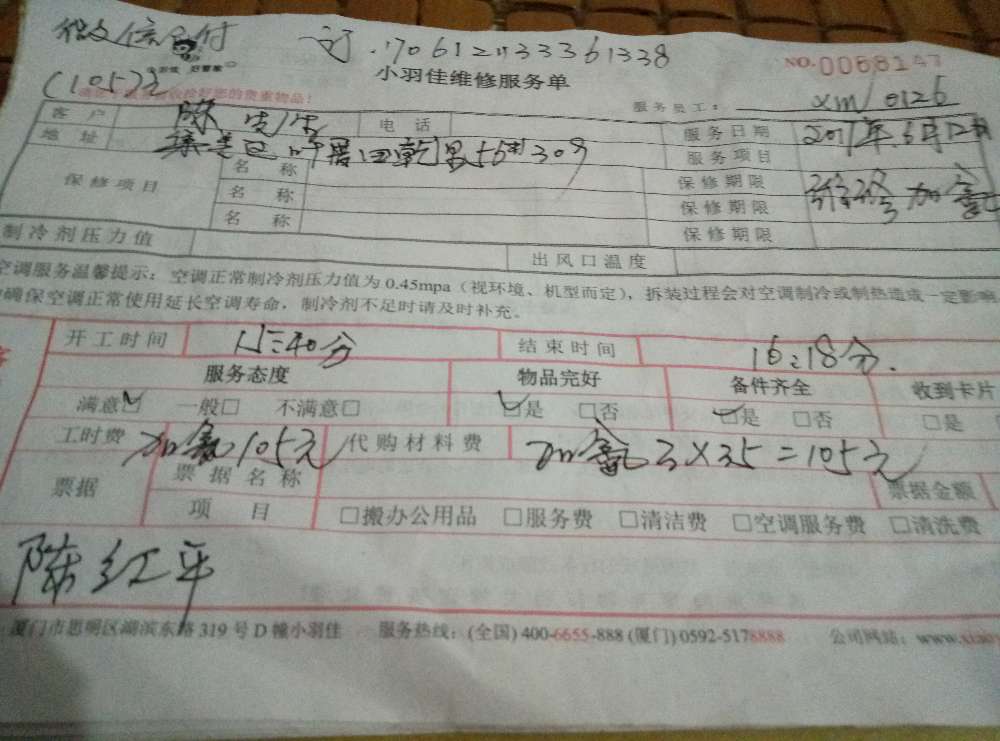 微信支付
订:1706121133361338
小羽佳维修服务单
NO.0068147
(105)元
服务员工: xm/0126
客户 陈先生 电话 服务日期 2017年6月12日
地址 服务项目
保修项目 名称 保修期限
名称 保修期限
名称 保修期限
维修 加氟
制冷剂压力值 出风口温度
空调服务温馨提示:空调正常制冷剂压力值为0.45mpa(视环境、机型而定),拆装过程会对空调制冷或制热造成一定影响
确保空调正常使用延长空调寿命,制冷剂不足时请及时补充。
开工时间 15:40分 结束时间 16:18分.
服务态度 物品完好 备件齐全 收到卡片
满意☑ 一般□ 不满意□ ☑是 □否 ☑是 □否 □是
工时费 加氟105元 代购材料费 加氟3×35=105元
票据 票据名称 票据金额
项目 □搬办公用品 □服务费 □清洁费 □空调服务费 □清洗费
陈红平
厦门市思明区湖滨东路319号D幢小羽佳 服务热线:(全国)400-6655-888(厦门)0592-5178888 公司网站:www.xiao